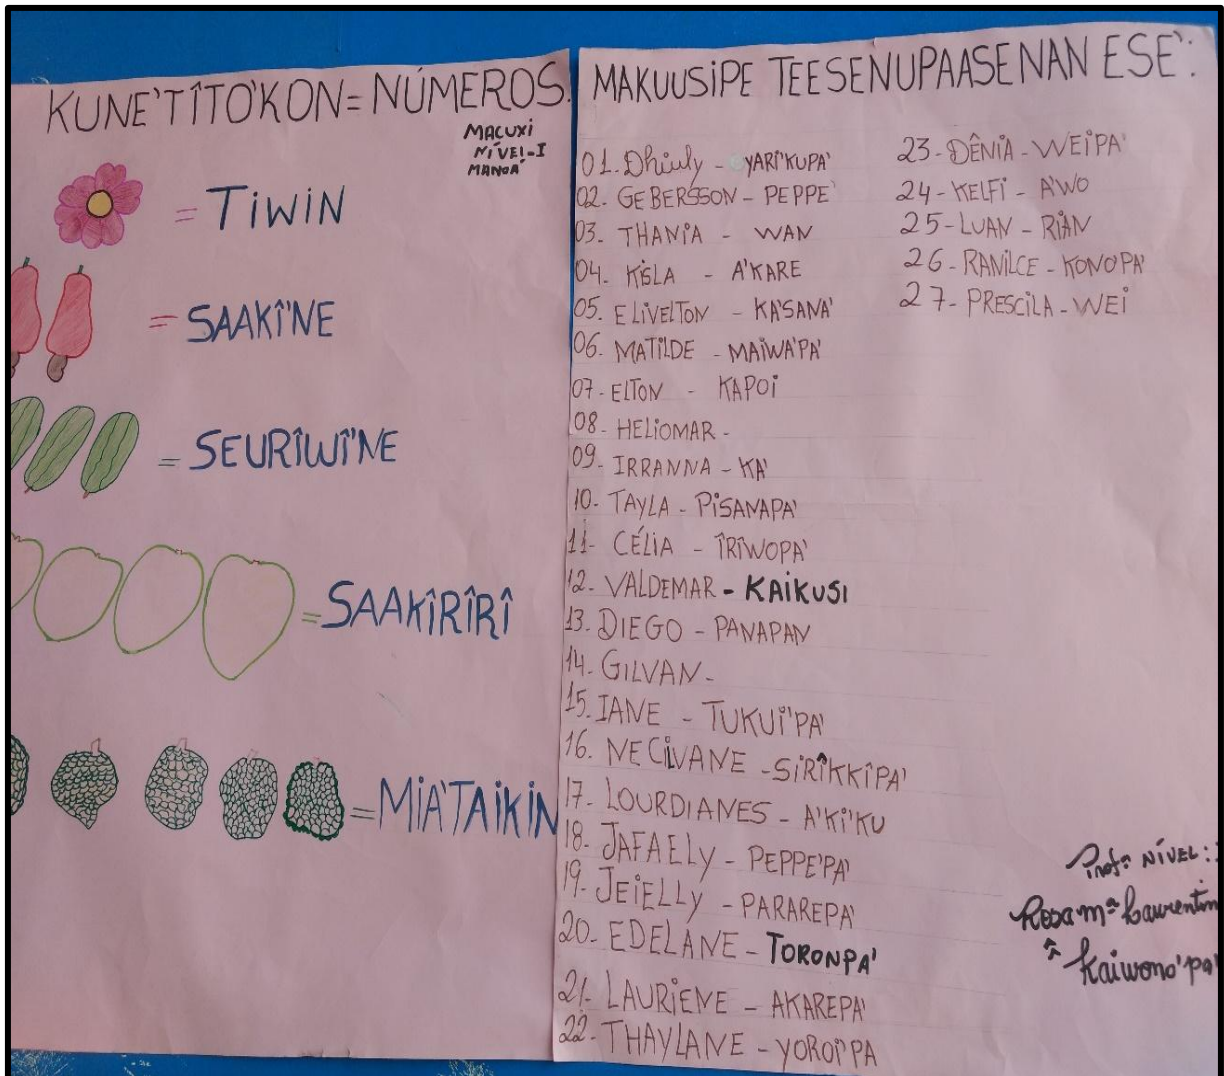 KUNE'TÎTO'KON = NÚMEROS.
MACUXI
NÍVEL-I
MANOÁ
= TIWIN
= SAAKÎ'NE
= SEURÎWÎ'NE
= SAAKÎRÎRÎ
= MIA'TAIKIN
MAKUUSIPE TEESENUPAASENAN ESE':
01. Dhiuly - YARI'KUPA'
02. GEBERSSON - PEPPE'
03. THANIA - WAN
04. KISLA - A'KARE
05. ELIVELTON - KA'SANA'
06. MATILDE - MAIWA'PA'
07 - ELTON - KAPOI
08 - HELIOMAR -
09 - IRRANNA - KA'
10. TAYLA - PISANAPA'
11 - CÉLIA - ÎRÎWOPA'
12. VALDEMAR - KAIKUSI
13. DIEGO - PANAPAN
14. GILVAN -
15. IANE - TUKUI'PA'
16. NECIVANE - SIRÎKKÎPA'
17. LOURDIANES - A'KI'KU
18. JAFAELY - PEPPE'PA'
19. JEIELLY - PARAREPA'
20. EDELANE - TORONPA'
21. LAURIENE - AKAREPA'
22. THAYLANE - YOROI'PA
23 - DÊNIA - WEIPA'
24 - KELFI - A'WO
25 - LUAN - RIÂN
26 - RANILCE - KONO'PA'
27 - PRESCILA - WEI
Profª NÍVEL:
Rosa mª Laurentin
Kaiwono'pa'